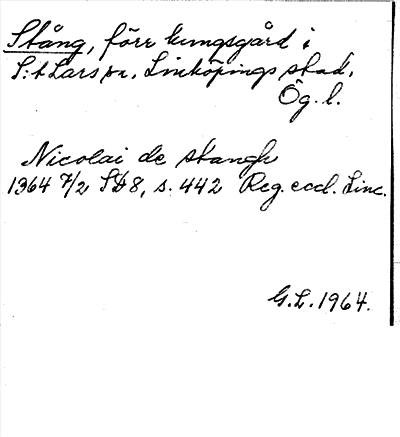 Stång, förr kungsgård i
S:t Lars sn, Linköpings stad,
Ög. l.
Nicolai de stangh
1364 7/2 SD 8, s. 442 Reg. eccl. Linc.
G.L. 1964.